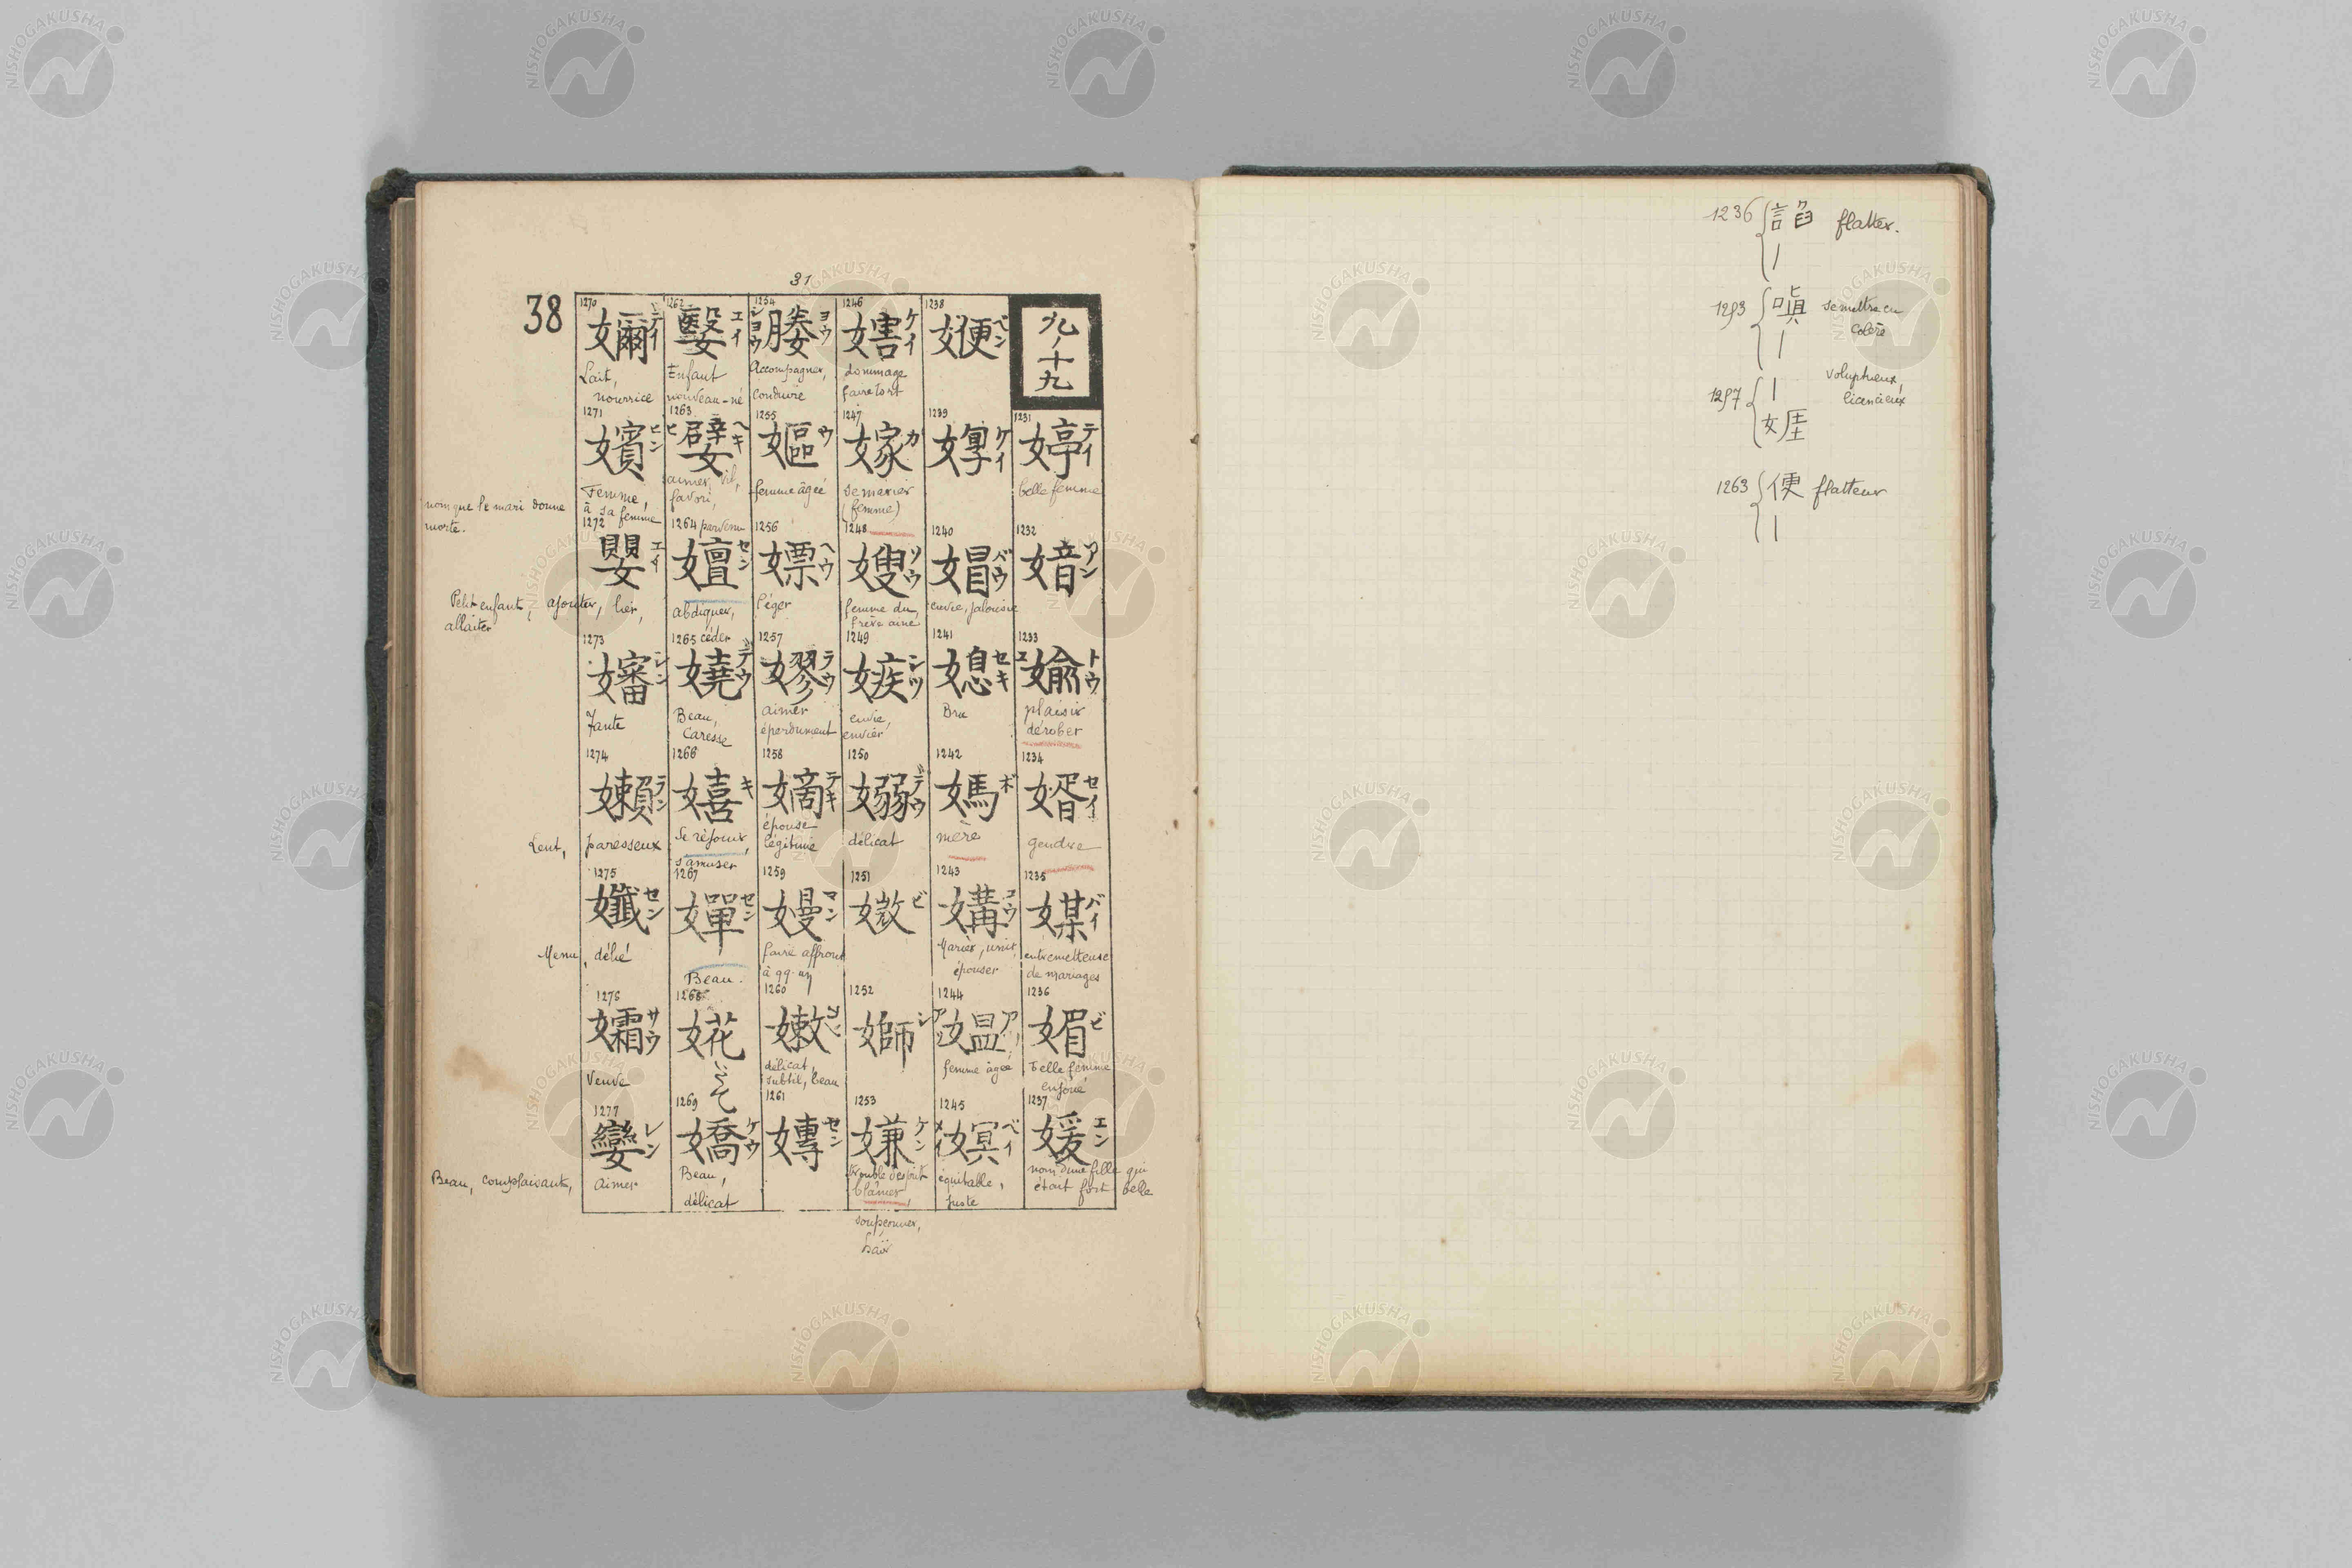 31
38
九ノ十九
1231
婷 テイ
belle femme
1232
媕 アン
1233
媮 トウ ユ
plaisir
dérober
1234
婿 セイ
gendre
1235
媒 バイ
entremetteuse
de mariages
1236
媚 ビ
belle femme
enjoué
1237
媛 エン
nom d'une fille qui
était fort belle
1238
㛹 ベン
1239
ケイ
1240
媢 バウ
envie, jalousie
1241
媳 セキ
Bru
1242
媽 ボ
mère
1243
媾 コウ
Marier, unir,
épouser
1244
媼 アウ
femme âgée
1245
嫇 ベイ メイ
équitable,
juste
1246
嫍 ケイ
dommage
faire tort
1247
嫁 カ
se marier
(femme)
1248
嫂 ソウ
femme du
frère aîné
1249
嫉 シツ
envie,
envier
1250
嫋 デウ
délicat
1251
媺 ビ
1252
媤 シ
1253
嫌 ケン
trouble d'esprit
blâmer,
soupçonner,
haïr
1254
媵 ヨウ シヨウ
Accompagner,
conduire
1255
嫗 ウ
femme âgée
1256
嫖 ヘウ
léger
1257
嫪 ラウ
aimer
éperdument
1258
嫡 テキ
épouse
légitime
1259
嫚 マン
faire affront
à qq. un
1260
嫩
délicat,
subtil, beau
1261
嫥 セン
1262
嫛 エイ
Enfant
nouveau-né
1263
嬖 ヘキ ヒ
aimer, vil,
favori,
parvenu
1264
嬗 セン
abdiquer,
céder
1265
嬈 デウ
Beau,
Caresse
1266
嬉 キ
Se réjouir,
s'amuser
1267
嬋 セン
Beau.
1268
埖
1269
嬌 ケウ
Beau,
délicat
1270
嬭 デイ
Lait,
nourrice
1271
嬪 ヒン
Femme,
nom que le mari donne à sa femme
morte.
1272
嬰 エイ
Petit enfant, ajouter, lier,
allaiter
1273
嬸 シン
Tante
1274
嬾 ラン
Lent, paresseux
1275
孅 セン
Menu, délié
1276
孀 サウ
Veuve
1277
孌 レン
Beau, complaisant, aimer
1236 { 諂 flatter.
1253 { 嗔 se mettre en
colère
1257 { voluptueux,
女厓 licencieux
1263 { 便 flatteur